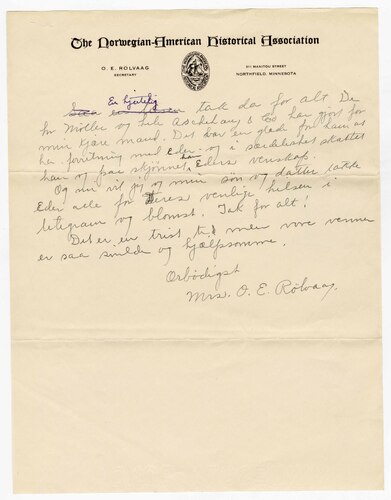 The Norwegian-American Historical Association
O. E. RÖLVAAG
SECRETARY
311 MANITOU STREET
NORTHFIELD, MINNESOTA
En hjertelig
tak da for alt De
hr Möller og H. Aschehoug & Co har gjort for
min kjære mand. Det var en glæde for ham at
ha forretning med Eder - og i særdeleshet skattet
han og paaskjönnet han Eders venskap.
Og nu vil jeg og min sön og datter takke
Eder alle for Deres venlige hilsen i
telegram og blomst. Tak for alt!
Det er en trist tid men vore venner
er saa snilde og hjælpsomme.
Ærbödigst
Mrs. O. E. Rölvaag.